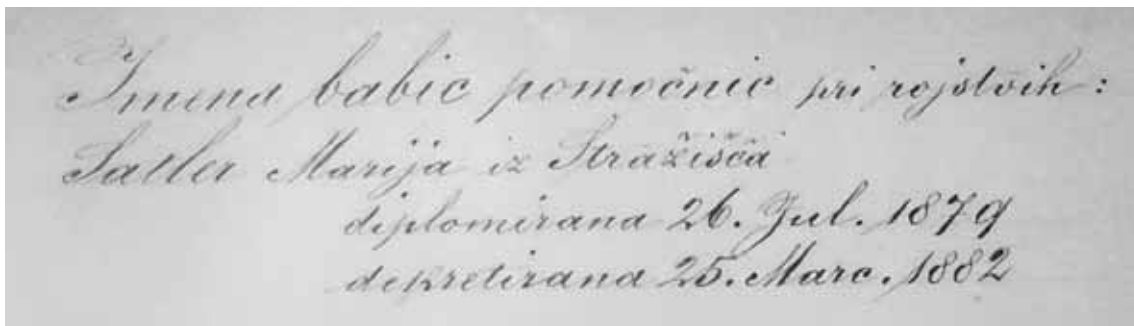 Imena babic pomočnic pri rojstvih:
Satler Marija iz Stražišča
diplomirana 26. Jul. 1879
dekretirana 25. Marc. 1882